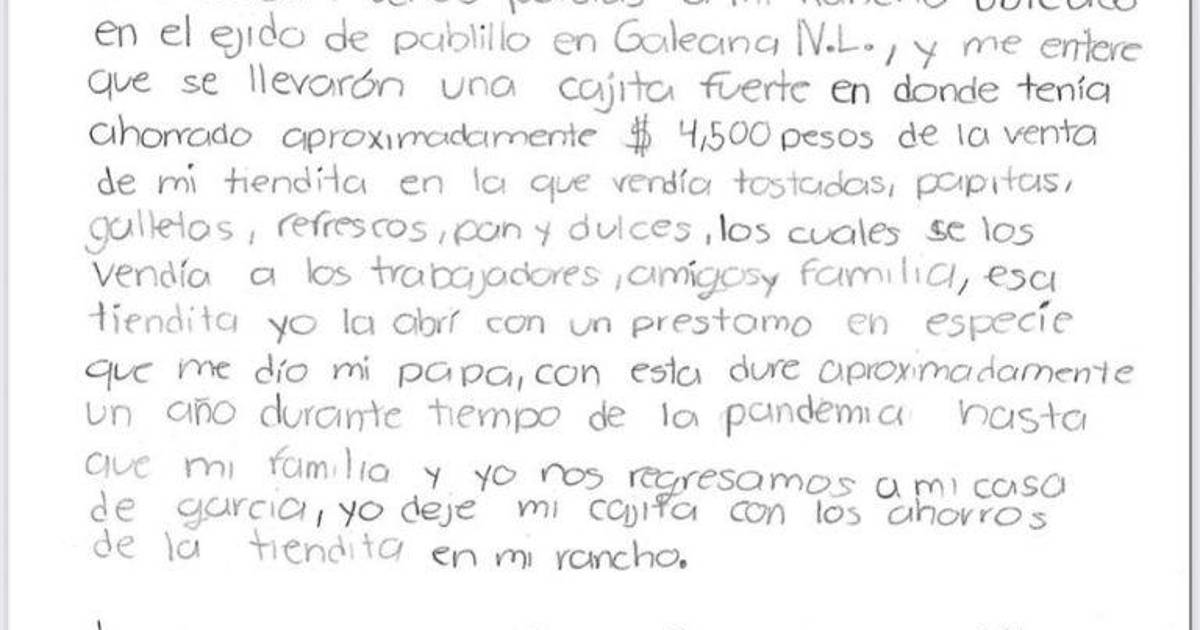 en el ejido de pablillo en Galeana N.L., y me entere
que se llevarón una cajita fuerte en donde tenía
ahorrado aproximadamente $ 4,500 pesos de la venta
de mi tiendita en la que vendía tostadas, papitas,
galletas, refrescos, pan y dulces, los cuales se los
vendía a los trabajadores, amigos y familia, esa
tiendita yo la abrí con un prestamo en especie
que me dío mi papa, con esta dure aproximadamente
un año durante tiempo de la pandemia hasta
que mi familia y yo nos regresamos a mi casa
de garcia, yo deje mi cajita con los ahorros
de la tiendita en mi rancho.